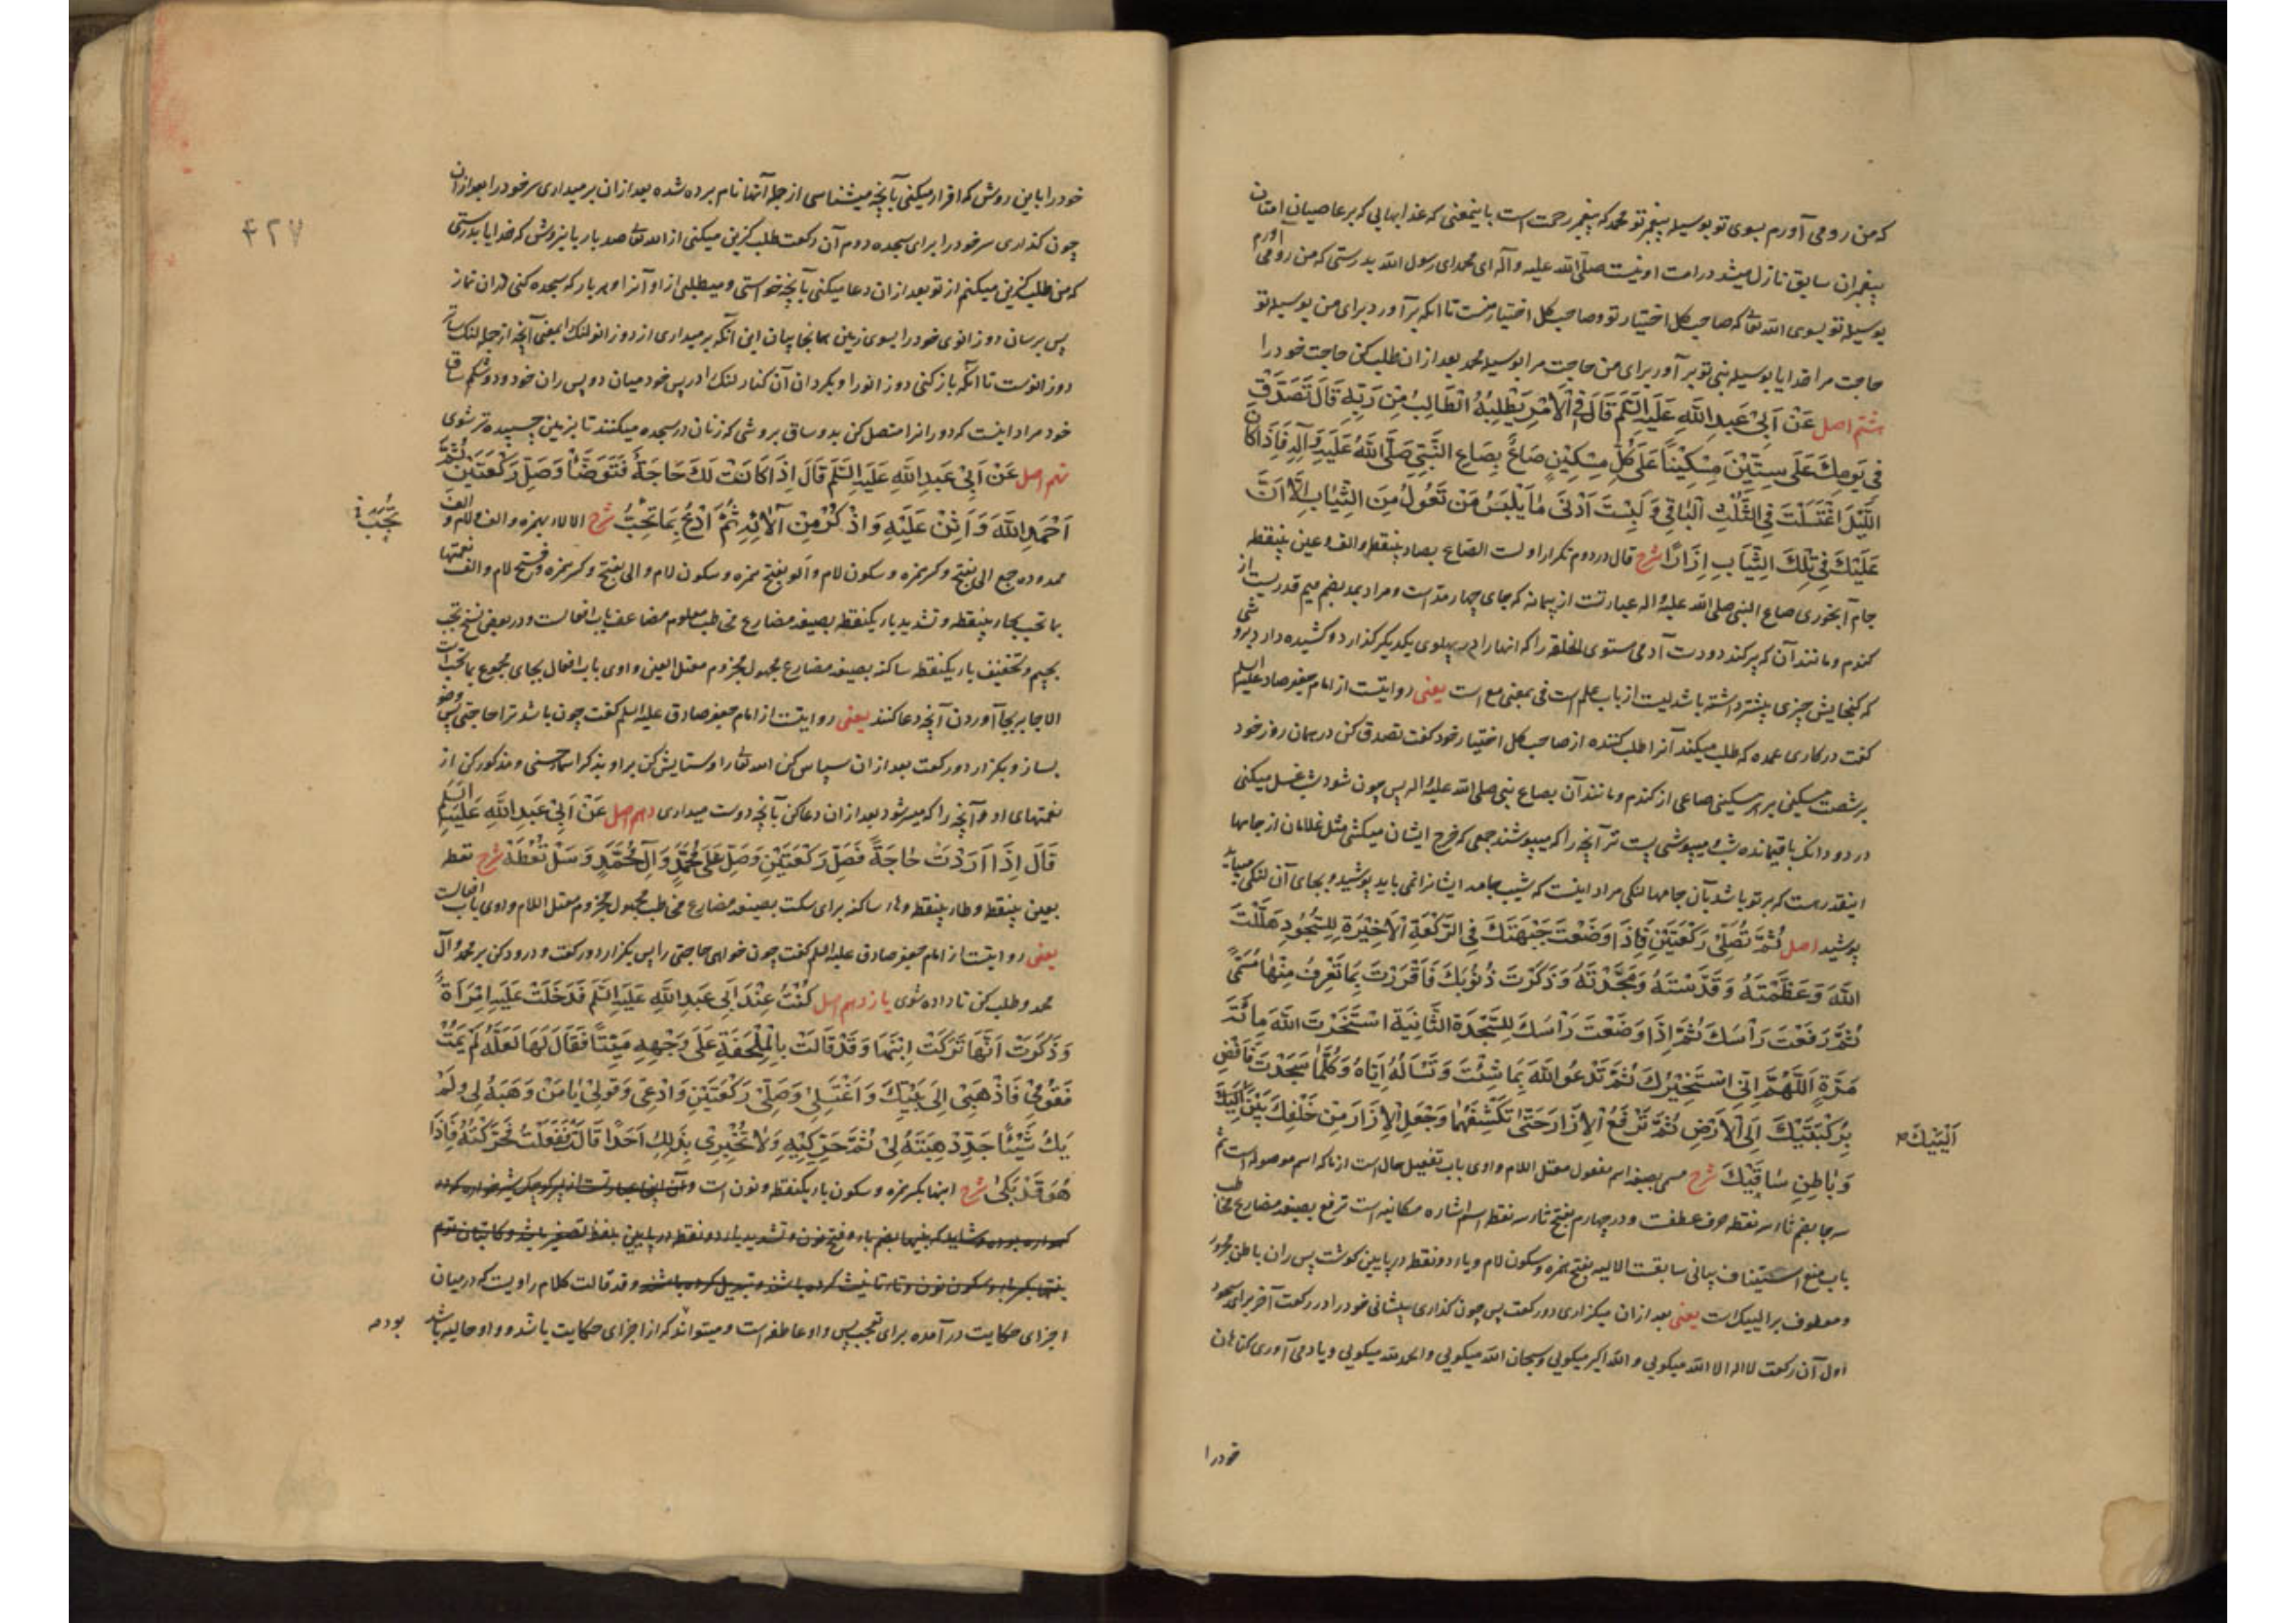 که من رو می آورم بسوی تو بوسیله پیغمبر تو محمد که پیغمبر رحمت است باینمعنی که عذابهایی که بر عاصیان امتان
پیغمبران سابق نازل میشد در امت او نیست صلّی الله علیه وآله ای محمد ای رسول الله بدرستی که من رو می آورم
بوسیله تو بسوی الله تعالی که صاحب کل اختیار تو وصاحب کل اختیار منست تا آنکه برآورد برای من بوسیله تو
حاجت مرا خدایا بوسیله نبی تو برآور برای من حاجت مرا بوسیله محمد بعد از ان طلب کن حاجت خود را
هشتم اصل عَنْ اَبِیْ عَبدِ اللّٰهِ عَلَیْهِ السَّلَم قَالَ فِی الْاَمْرِ یَطْلِبُهُ الطَّالِبُ مِنْ رَبِّهِ قَالَ تَصَدَّقْ
فِی یَومِكَ عَلَی سِتِّیْنَ مِسْكِیْناً عَلَی كُلِّ مِسْكِیْنٍ صَاعٌ بِصَاعِ النَّبِیِّ صَلَّی اللّٰهُ عَلَیْهِ وَآلِهِ فَاِذَا كَانَ
اللَّیْلُ اغْتَسَلْتَ فِی الثُّلُثِ الْبَاقِی وَ لَبِسْتَ اَدْنَی مَا یَلْبَسُ مَنْ تَعُولُ مِنَ الثِّیٰابِ اِلَّا اَنَّ
عَلَیْكَ فِی تِلْكَ الثِّیَابِ اِزَارًا شرح قال در دوم تکرار اولست الصّاع بصاد بینقطه والف وعین بینقطه
جام آبخوری صاع النبی صلی الله علیه واله عبارتست از پیمانه که جای چهار مدّ است ومراد بمد بضم میم قدریست از
گندم ومانند آن که پر کند دو دست آدمی مستوی الخلقه را که انها را در پهلوی یکدیگر گذارد وکشیده دارد برو شی
که گنجایش چیزی بیشتر داشته باشد لبست از باب علم است فی بمعنی مع است یعنی روایتست از امام جعفر صادق علیه السلم
گفت در کاری عمده که طلب میکند آنرا طلب کننده از صاحب کل اختیار خود گفت تصدق کن در همان روز خود
بر شصت مسکین بر هر مسکینی صاعی از گندم ومانند آن بصاع نبی صلی الله علیه واله پس چون شود شب غسل میکنی
در دو دانگ باقیمانده شب ومیپوشی پست تر آنچه را که میپوشند جمعی که خرج ایشان میکشی مثل غلامان از جامها
اینقدر هست که بر تو باشد بآن جامها لنگی مراد اینست که شیب جامه ایشانرا نمی باید پوشید وبجای آن لنگی میباید
پوشید اصل ثُمَّ تُصَلِّی رَكْعَتَیْنِ فَاِذَا وَضَعْتَ جَبْهَتَكَ فِی الرَّكْعَةِ الْاَخِیْرَةِ لِلسُّجُودِ هَلَّلْتَ
اللّٰهَ وَعَظَّمْتَهُ وَ قَدَّسْتَهُ وَمَجَّدْتَهُ وَذَكَرْتَ ذُنُوبَكَ فَاَقْرَرْتَ بِمَا تَعْرِفُ مِنْهَا مُسَمًّی
ثُمَّ رَفَعْتَ رَأْسَكَ ثُمَّ اِذَا وَضَعْتَ رَأْسَكَ لِلسَّجْدَةِ الثَّانِیَةِ اسْتَخَرْتَ اللّٰهَ مِائَةَ
مَرَّةٍ اَللّٰهُمَّ اِنِّی اَسْتَخِیْرُكَ ثُمَّ تَدْعُو اللّٰهَ بِمَا شِئْتَ وَ تَسْاَلُهُ اِیَّاهُ وَكُلَّمَا سَجَدْتَ فَاَفْضِ
بِرُكْبَتَیْكَ اِلَی الْاَرْضِ ثُمَّ تَرْفَعُ الْاِزَارَ حَتّٰی تَكْشِفَهُمَا وَجْعَلِ الْاِزَارَ مِنْ خَلْفِكَ بَیْنَ اَلْیَیْكَ
اَلْیَیْكَ
وَبَاطِنِ سَاقَیْكَ شرح مسمی بصیغه اسم مفعول معتل اللام واوی باب تفعیل حال است از ما که اسم موصوله است ثم
سه جا بضم ثاء سه نقطه حرف عطفست ودر چهارم بفتح ثاء سه نقطه اسم اشاره مکانیه است ترفع بصیغه مضارع مخاطب
باب منع استیناف بیانی سابقست الالیه بفتح همزه وسکون لام ویاء دو نقطه در پایین گوشت پس ران باطن مجرور
ومعطوف بر الییک است یعنی بعد از ان میگزاری دو رکعت پس چون گذاری پیشانی خود را در رکعت آخر برای سجود
اول آن رکعت لا اله الا الله میگویی والله اکبر میگویی وسبحان الله میگویی والحمد لله میگویی ویاد می آوری گناهان
خود را
۴۲۷
خود را باین روش که اقرار میکنی بآنچه میشناسی از جمله آنها نام برده شده بعد از ان بر میداری سر خود را بعد از ان
چون گذاری سر خود را برای سجده دوم آن رکعت طلب گزین میکنی از الله تعالی صد بار باینروش که خدایا بدرستی
که من طلب گزین میکنم از تو بعد از ان دعا میکنی بآنچه خواستی ومیطلبی از او آنرا وهر بار که سجده کنی در ان نماز
پس برسان دو زانوی خود را بسوی زمین همانجا بیان این آنکه بر میداری از دو زانو لنگ را بمعنی آنچه از جمله لنگ ساتر
دو زانوست تا آنکه باز کنی دو زانو را وبگردان آن کنار لنگ را در پس خود میان دو پس ران خود ودو شکم ساق
خود مراد اینست که دو ران را متصل کن بدو ساق بروشی که زنان در سجده میکنند تا بزمین چسبیده تر شوی
نهم اصل عَنْ اَبِیْ عَبدِ اللّٰهِ عَلَیْهِ السَّلَم قَالَ اِذَا كَانَتْ لَكَ حَاجَةٌ فَتَوَضَّأْ وَصَلِّ رَكْعَتَیْنِ ثُمَّ
اَحْمَدِ اللّٰهَ وَ اَثِنْ عَلَیْهِ وَاذْكُرْ مِنْ آلَائِهِ ثُمَّ ادْعُ بِمَا تُحِبُّ شرح الالاء بهمزه والف ولام والف
تُجَبْ
ممدوده جمع الی بفتح وکسر همزه وسکون لام والو بفتح همزه وسکون لام والی بفتح وکسر همزه وفتح لام والف نعمتها
بما تحب بحاء بینقطه وتشدید باء یکنقطه بصیغه مضارع مخاطب معلوم مضاعف باب افعالست ودر بعض نسخ تجب
بجیم وتخفیف باء یکنقطه ساکنه بصیغه مضارع مجهول مجزوم معتل العین واوی باب افعال بجای مجموع بما تحب است
الاجابه بجا آوردن آنچه دعا کنند یعنی روایتست از امام جعفر صادق علیه السلم گفت چون باشد ترا حاجتی پس وضو
بساز وبگزار دو رکعت بعد از ان سپاس کن الله تعالی را وستایش کن براو بذکر اسماء حسنی ومذکور کن از
نعمتهای او آنچه را که میسر شود بعد از ان دعا کن بآنچه دوست میداری دهم اصل عَنْ اَبِیْ عَبدِ اللّٰهِ عَلَیْهِ السَّلَم
قَالَ اِذَا اَرَدْتَ حَاجَةً فَصَلِّ رَكْعَتَیْنِ وَصَلِّ عَلَی مُحَمَّدٍ وَآلِ مُحَمَّدٍ وَسَلْ تُعْطَهْ شرح تعطه
بعین بینقطه وطاء بینقطه وهاء ساکنه برای سکت بصیغه مضارع مخاطب مجهول مجزوم معتل اللام واوی باب افعالست
یعنی روایتست از امام جعفر صادق علیه السلم گفت چون خواهی حاجتی را پس بگزار دو رکعت ودرود کن بر محمد وآل
محمد وطلب کن تا داده شوی یازدهم اصل كُنْتُ عِنْدَ اَبِی عَبدِ اللّٰهِ عَلَیْهِ السَّلَم فَدَخَلَتْ عَلَیْهِ امْرَاَةٌ
وَذَكَرَتْ اَنَّهَا تَرَكَتْ اِبْنَهَا وَقَدْ قَالَتْ بِالْمِلْحَفَةِ عَلَی وَجْهِهِ مَیِّتًا فَقَالَ لَهَا لَعَلَّهُ لَمْ یَمُتْ
فَقُومِی فَاذْهَبِی اِلَی بَیْتِكِ وَاغْتَسِلِی وَصَلِّی رَكْعَتَیْنِ وَادْعِی وَقُولِی یَا مَنْ وَهَبَهُ لِی وَلَمْ
یَكُ شَیْئًا جَدِّدْ هِبَتَهُ لِی ثُمَّ حَرِّكِیْهِ وَلَا تُخْبِرِی بِذٰلِكِ اَحَدًا قَالَتْ فَفَعَلْتُ فَحَرَّكْتُهُ فَاِذَا
هُوَ قَدْ بَكٰی شرح ابنها بکسر همزه وسکون باء یکنقطه ونون است وآن اینجا عبارتست از پسر کوچک شیر خواره که در
گهواره بوده وشاید که بنیها بضم باء وفتح نون وتشدید یاء دو نقطه در پایین بلفظ تصغیر باشد وکاتبان توهم
بنتها بکسر باء وسکون نون وتاء تانیث کرده باشند وتبدیل کرده باشند وقد قالت کلام راویست که درمیان
اجزای حکایت در آمده برای تعجب پس واو عاطفه است ومیتواند که از اجزای حکایت باشد وواو حالیه باشد
بوده